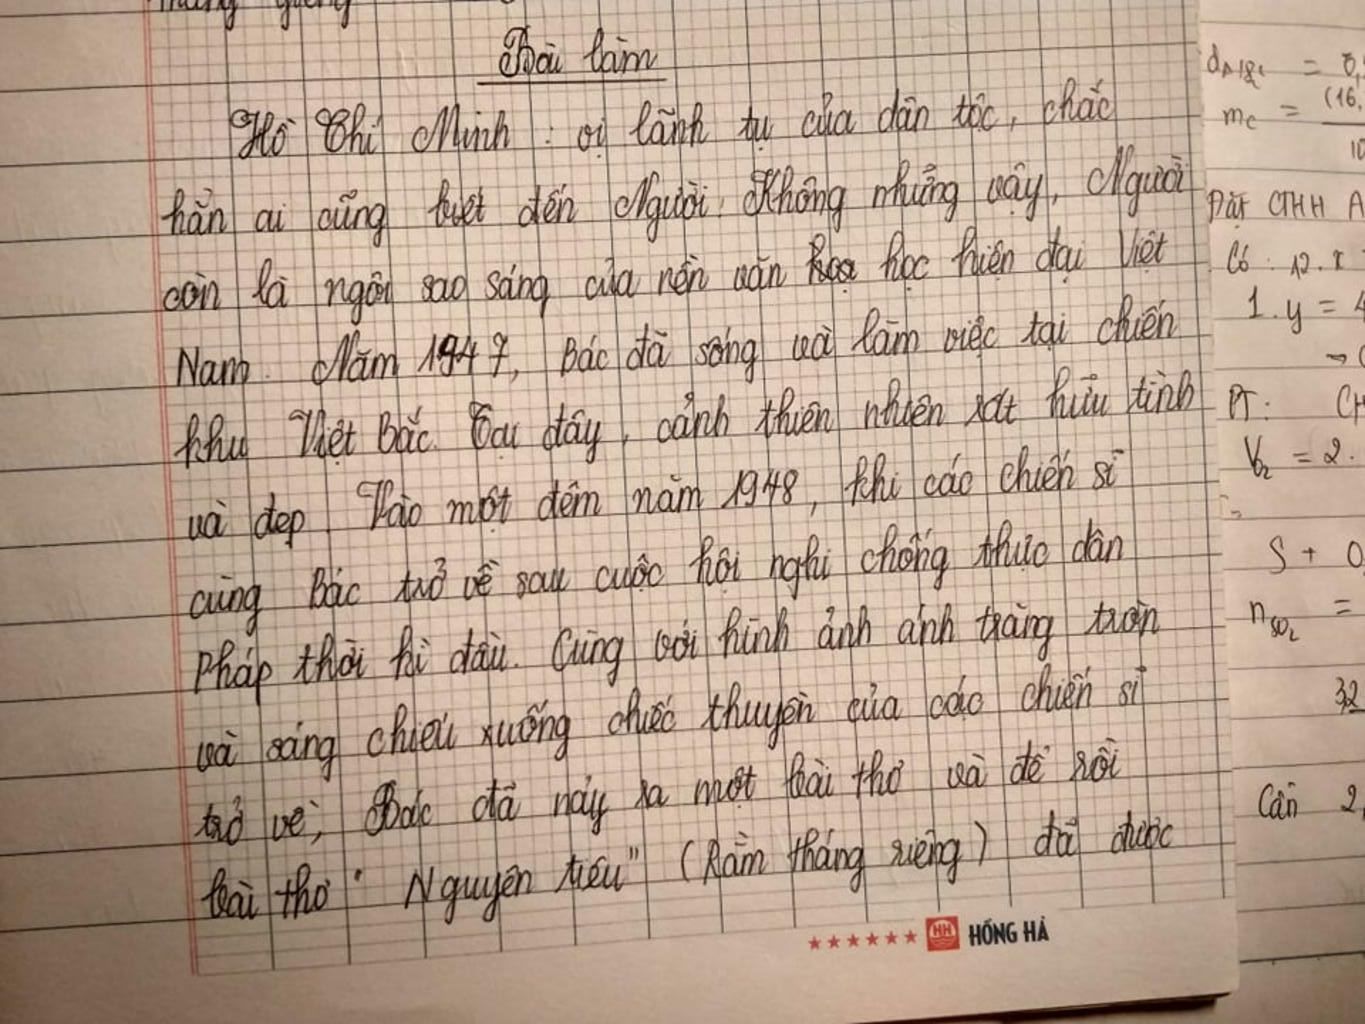 Bài làm
Hồ Chí Minh: vị lãnh tụ của dân tộc, chắc
hẳn ai cũng biết đến Người. Không những vậy, Người
còn là ngôi sao sáng của nền văn học hiện đại Việt
Nam. Năm 1947, Bác đã sống và làm việc tại chiến
khu Việt Bắc. Tại đây, cảnh thiên nhiên rất hữu tình
và đẹp. Vào một đêm năm 1948, khi các chiến sĩ
cùng Bác trở về sau cuộc hội nghị chống thực dân
Pháp thời kì đầu. Cùng với hình ảnh ánh trăng tròn
và sáng chiếu xuống chiếc thuyền của các chiến sĩ
trở về, Bác đã nảy ra một bài thơ và để rồi
bài thơ "Nguyên tiêu" (Rằm tháng riêng) đã được
HỒNG HÀ
=
mc =
Đặt CTHH A
Có: 12.x
1.y = 4
PT: CH
= 2.
S + O
nSO2 =
32
Cần 2,